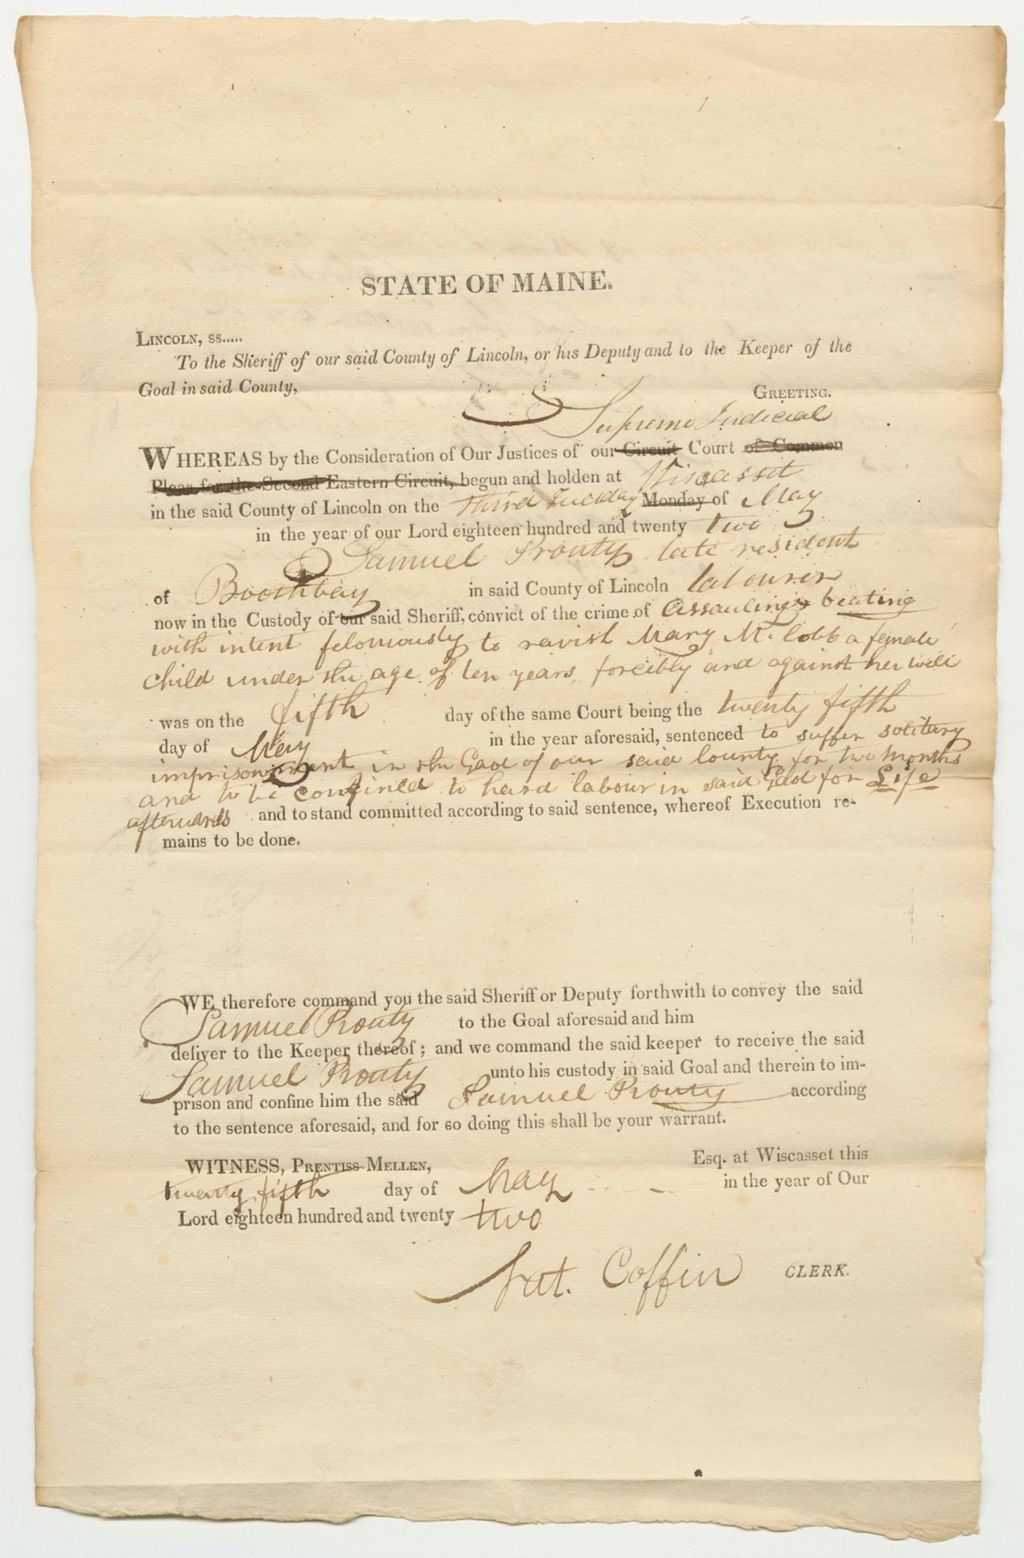 STATE OF MAINE.
LINCOLN, ss.....
To the Sheriff of our said County of Lincoln, or his Deputy and to the Keeper of the
Goal in said County, GREETING.
Supreme Judicial
WHEREAS by the Consideration of Our Justices of our Circuit Court of Common
Pleas for the Second Eastern Circuit, begun and holden at Wiscasset
in the said County of Lincoln on the third Tuesday Monday of May
in the year of our Lord eighteen hundred and twenty two
Samuel Prouty late resident
of Boothbay in said County of Lincoln labourer
now in the Custody of our said Sheriff, convict of the crime of assauling & beating
with intent feloniously to ravish Mary McCobb a female
child under the age of ten years, forcibly and against her will
was on the fifth day of the same Court being the twenty fifth
day of May in the year aforesaid, sentenced to suffer solitary
imprisonment in the Gaol of our said County for two months
and to be confined to hard labour in said Gaol for Life
afterwards and to stand committed according to said sentence, whereof Execution re-
mains to be done.
WE therefore command you the said Sheriff or Deputy forthwith to convey the said
Samuel Prouty to the Goal aforesaid and him
deliver to the Keeper thereof; and we command the said keeper to receive the said
Samuel Prouty unto his custody in said Goal and therein to im-
prison and confine him the said Samuel Prouty according
to the sentence aforesaid, and for so doing this shall be your warrant.
WITNESS, PRENTISS MELLEN, Esq. at Wiscasset this
twenty fifth day of May in the year of Our
Lord eighteen hundred and twenty two
Nat. Coffin CLERK.